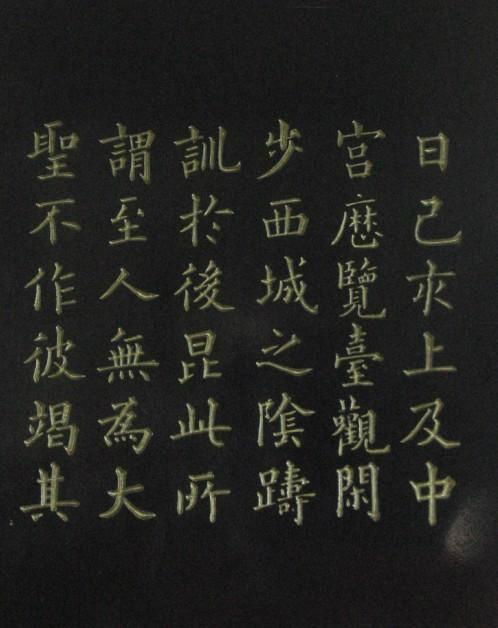 日己亥上及中
宫歷覽臺觀閑
步西城之陰躊
訓於後昆此所
謂至人無為大
聖不作彼竭其